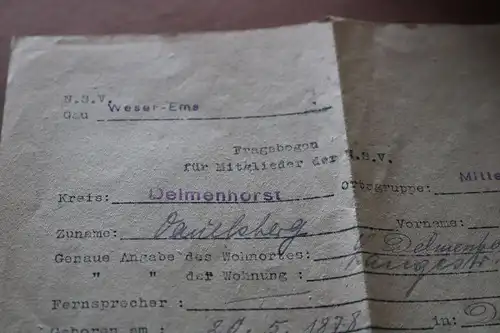 N.S.V.
Gau Weser-Ems
Fragebogen
für Mitglieder der N.S.V.
Kreis: Delmenhorst Ortsgruppe: Mitte
Zuname: Danielsberg Vorname:
Genaue Angabe des Wohnortes: Delmenho
" " der Wohnung: Langestr
Fernsprecher :
Geboren am : 20. 5. 1878 in: